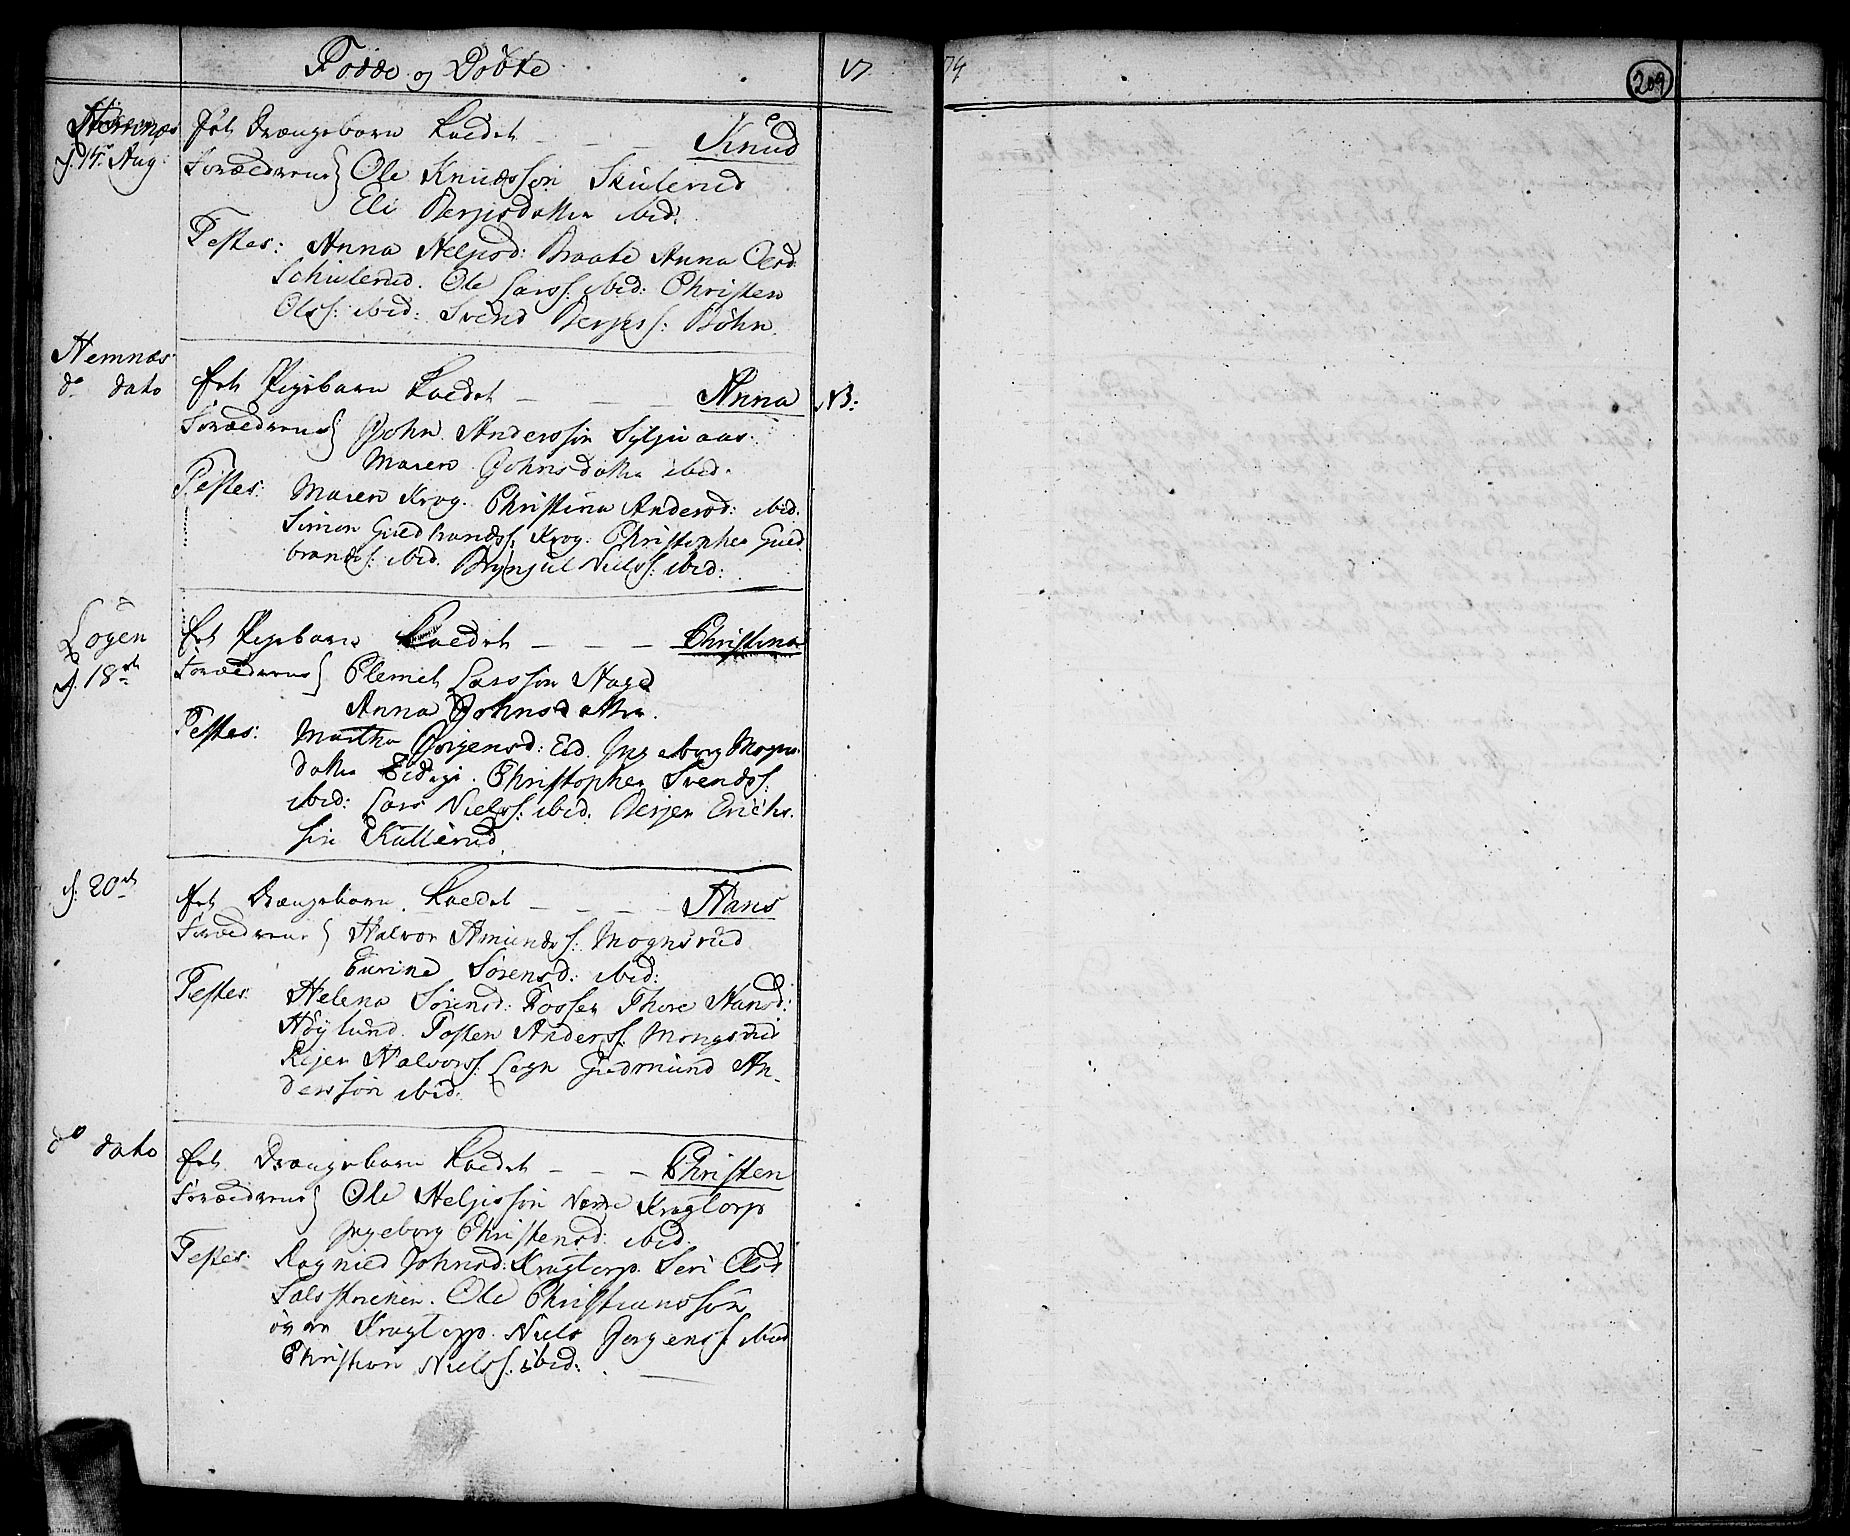 Fødde og Døbte 17 74 209
Hemnæs
d. 14de Aug:
Et Drængebarn kaldet — — — Knud
Forældrene} Ole Knudssøn Skulerud
Eli Børgisdatter ibid:
Testes: Anna Helgisd: Braate Anna Olsd:
Schulerud. Ole Larss: ibid: Christen
Olss: ibid: Svend Børgess: Bøhn.
Hemnæs
do dato
Et Pigebarn kaldet — — — Anna NB:
Forældrene} John Anderssøn Syljuaas
Maren Johnsdatter ibid.
Testes: Maren Krog. Christina Andersd: ibid.
Simon Guldbrandss: Krog. Christopher Guld
brands: ibid. Brynjul Nielss: ibid:
Løgen
d. 18de
Et Pigebarn kaldet — — — Christina
Forældrene} Clemet Larssøn Hage
Anna Johnsdatter.
Testes: Martha Jørgensd: Eid. Ingeborg Mogns
datter Eidegi. Christopher Svendss:
ibid: Lars Nielss: ibid. Børger Erichs
søn Kullerud.
d. 20de
Et Drængebarn kaldet — — — Hans
Forældrene} Halvor Amundss: Mognsrud
Turine Sørensd: ibid:
Testes: Helena Sørensd: Fosser Thore Hansd:
Høylund. Tosten Anderss: Mongsrud
Reier Halvorss: Løgn Gudmund An-
derssøn ibid.
do dato
Et Drængebarn kaldet — — — Christen
Forældrene} Ole Helgissøn Nedre Krogtorp
Ingeborg Christensd: ibid.
Testes: Ragnild Johnsd: Krogtorp. Seri Olsd
Ole Christianssøn
øvre Krogtorp. Niels Jørgenss: ibid
Christian Nielss: ibid: